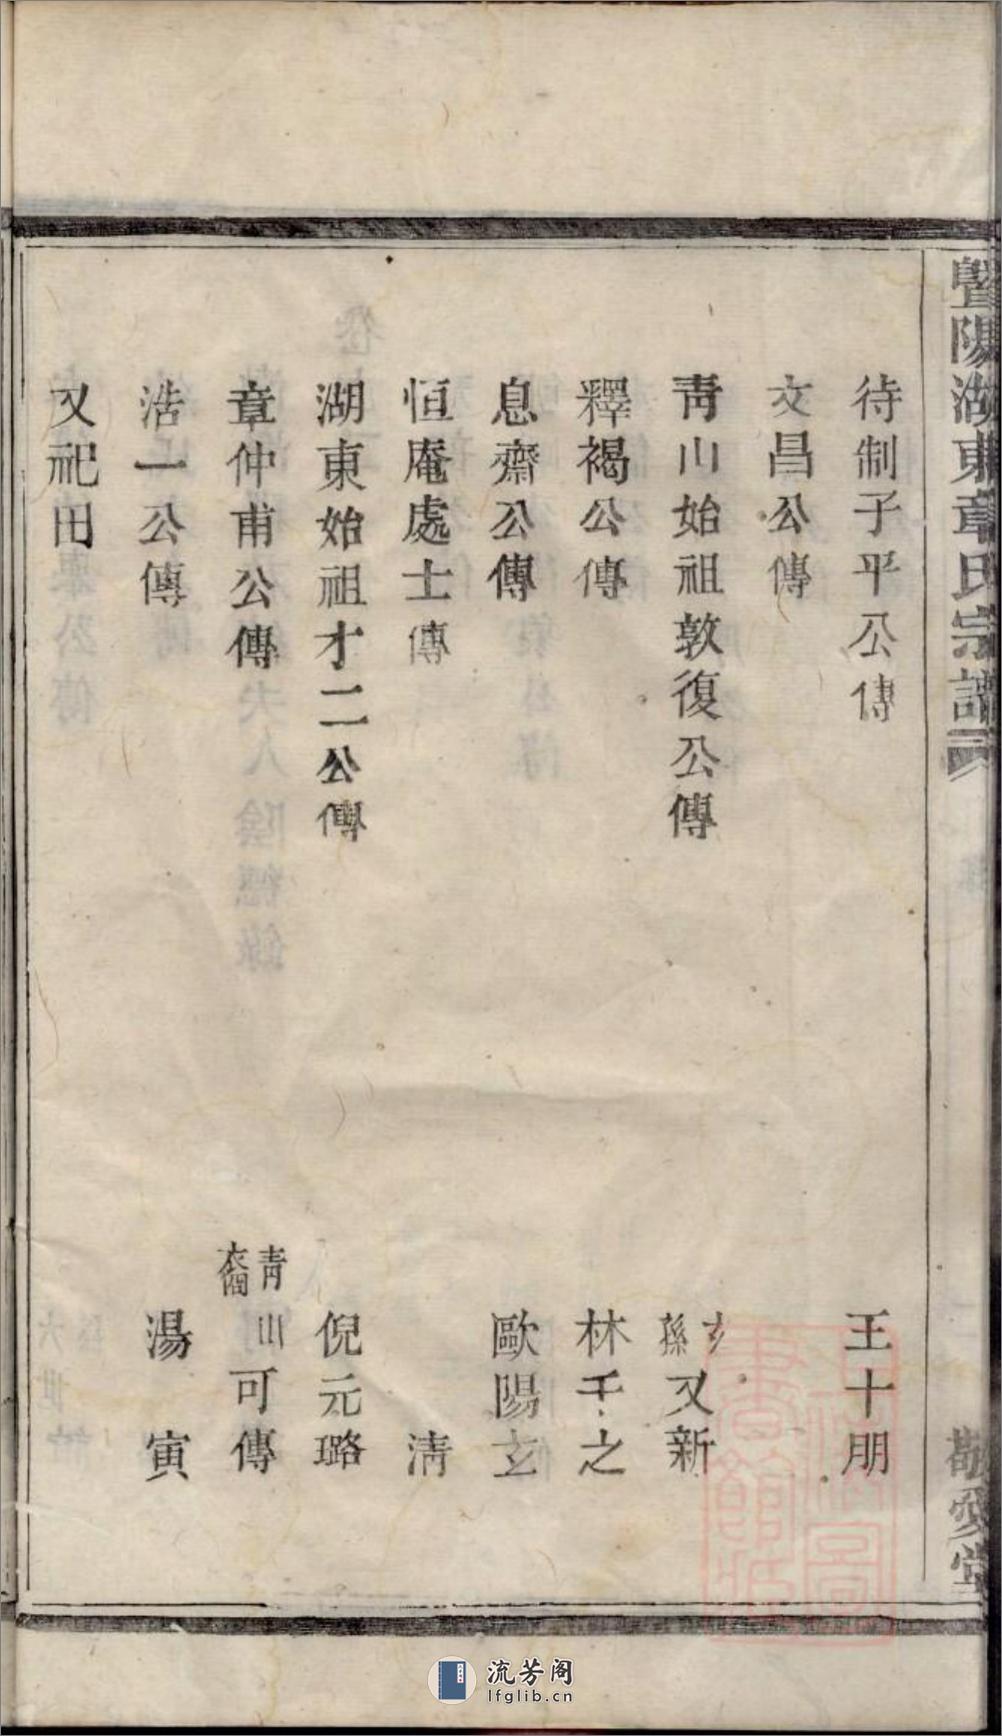 暨陽湖東章氏宗譜
敬愛堂
待制子平公傳 王十朋
文昌公傳
青山始祖敦復公傳 玄孫又新
釋褐公傳 林千之
息齋公傳 歐陽玄
恒庵處士傳 清
湖東始祖才二公傳 倪元璐
章仲甫公傳 青山裔可傳
浩一公傳 湯寅
又祀田
流芳阁
lfglib.cn